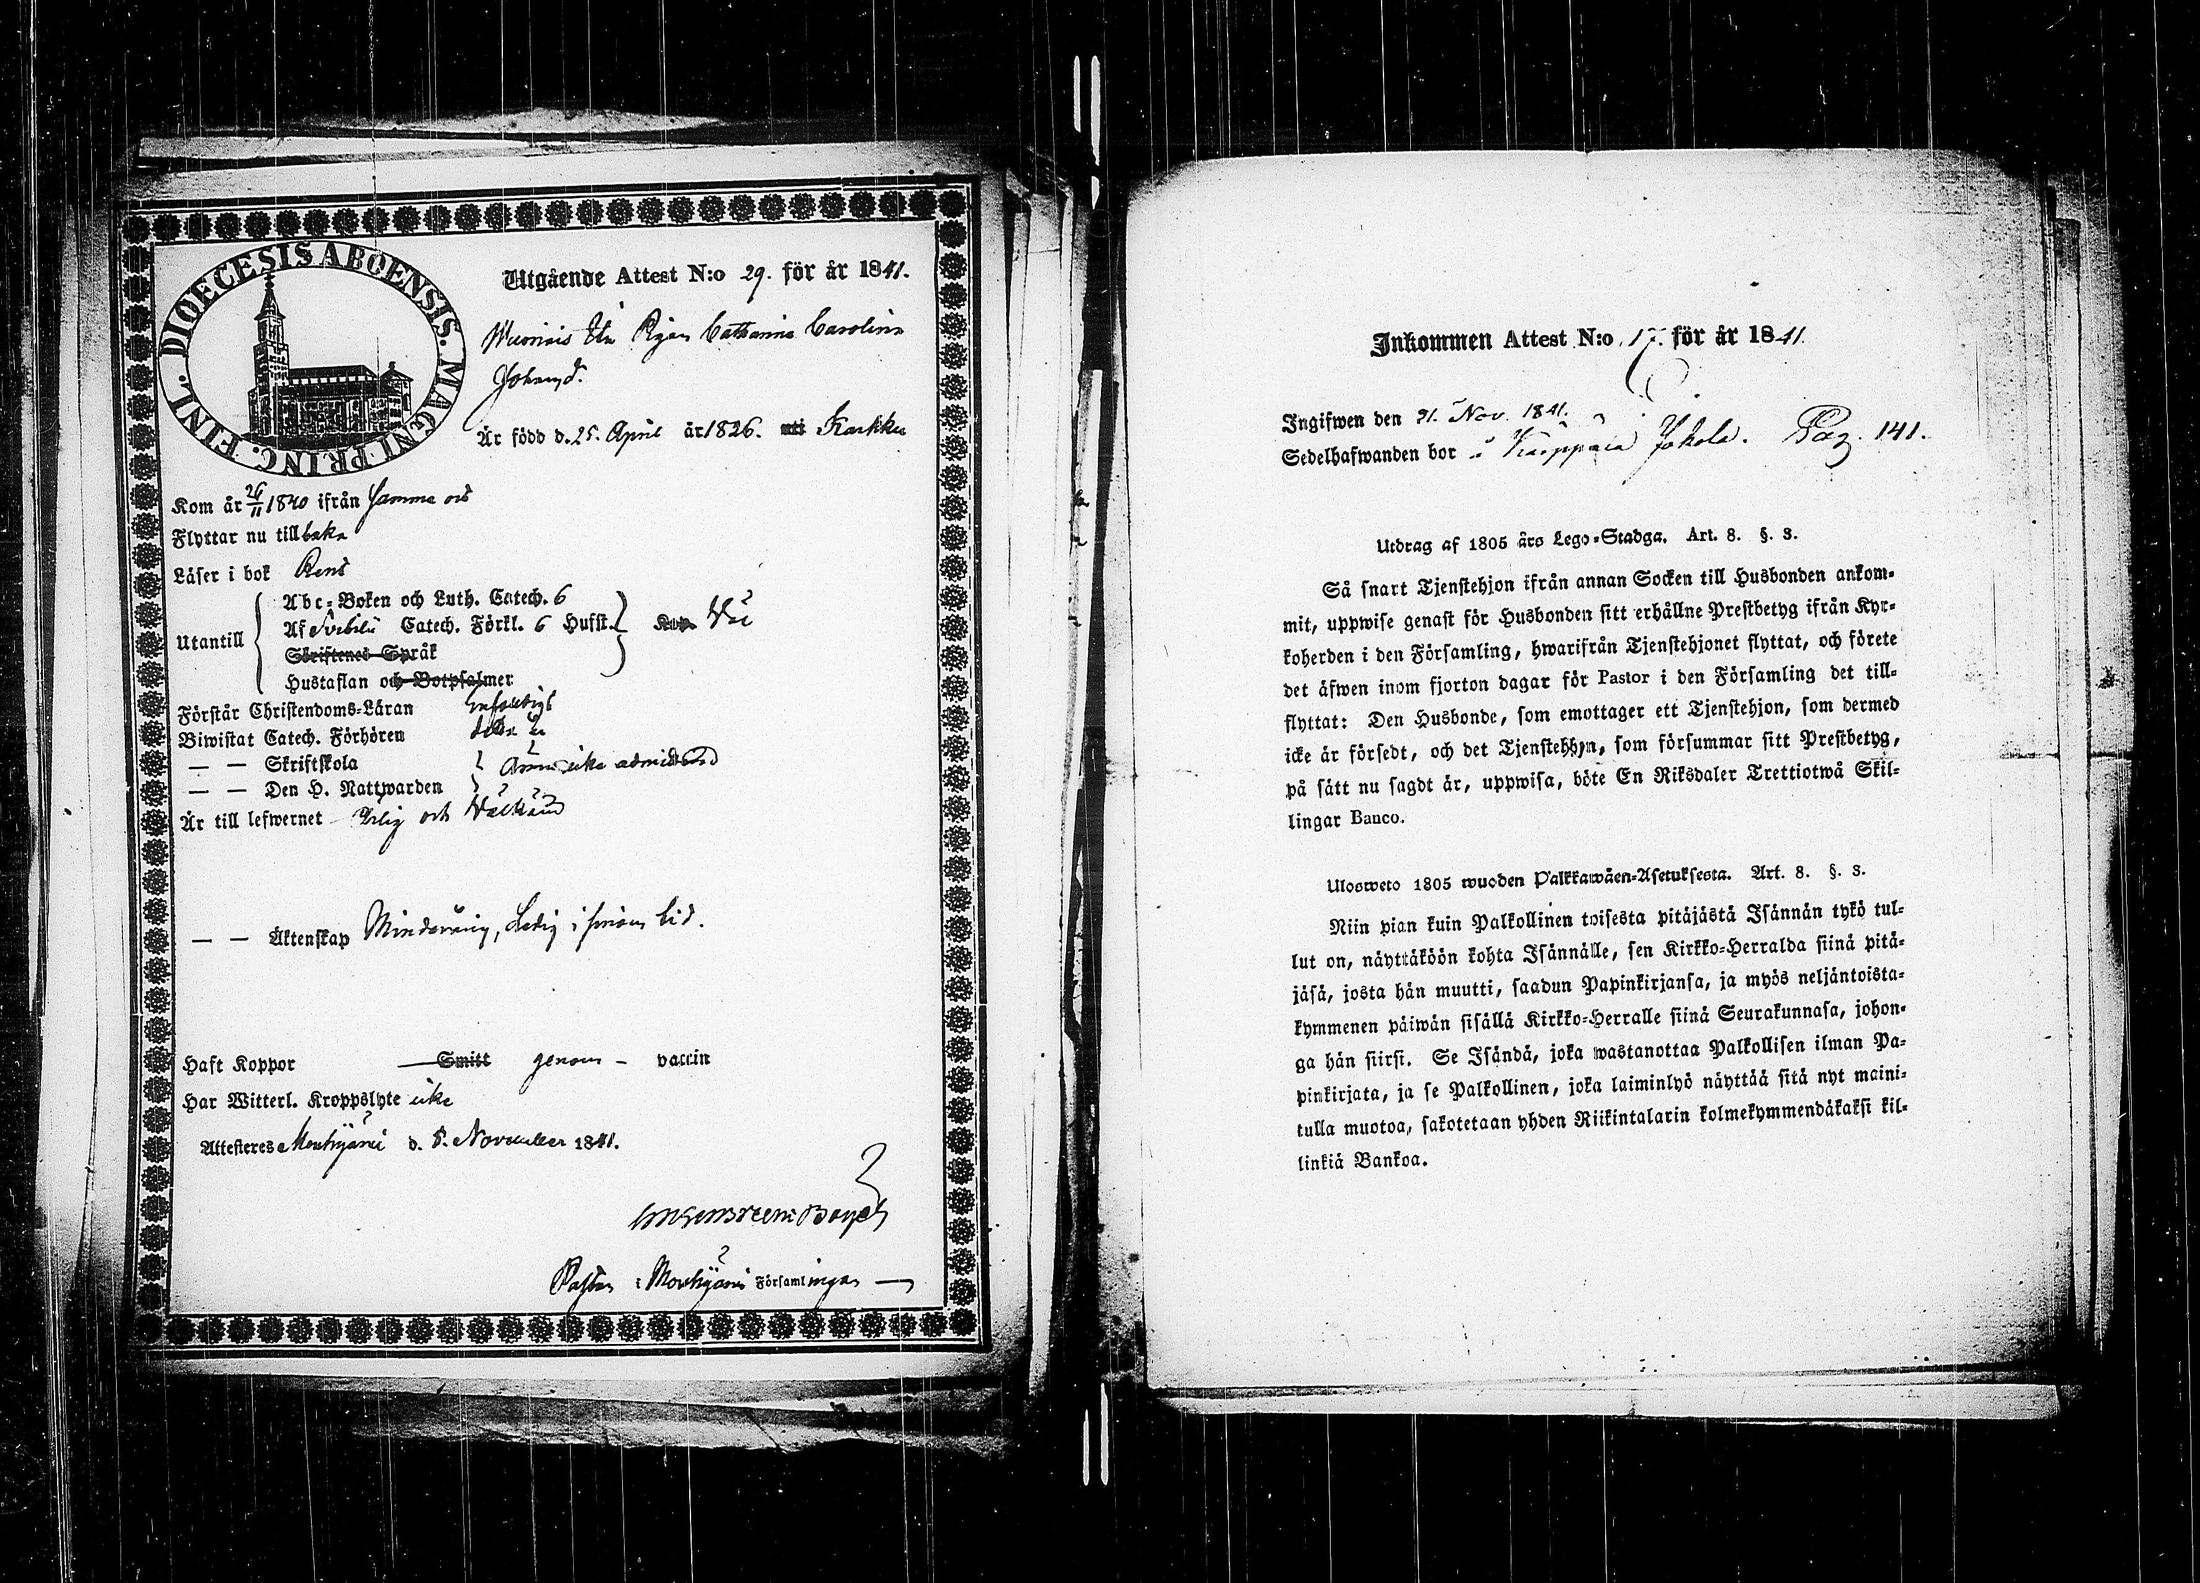 DIOECESIS ABOENSIS. MAGNI PRINC. FINL.
Utgående Attest N:o 29. för år 1841.
Pigan Catharina Carolina
Johansd.
Är född d. 25. April år 1826. uti Karkku
Kom år 26/11 1840 ifrån samma ort
Flyttar nu tillbaka
Läser i bok Rent
Utantill
Abc-Boken och Luth. Catech. 6
Af Svebilii Catech. Förkl. 6 Husst.
Skriftenes Språk
Hustaflan och Botpsalmer
Förstår Christendoms-Läran Enfaldigt
Biwistat Catech. Förhören
— — Skriftskola
— — Den H. Nattwarden
Ännu icke admitterad
Är till lefwernet Ärlig och Wälkänd
— — Äktenskap Minderårig, Ledig i sinom tid.
Haft Koppor Smitt genom vaccin
Har Witterl. Kroppslyte icke
Attesteras Mouhijärvi d. 8. November 1841.
Pastor i Mouhijärvi Församlingar
Inkommen Attest N:o 17. för år 1841
Ingifwen den 21. Nov. 1841.
Sedelhafwanden bor i Jokela. Pag. 141.
Utdrag af 1805 års Lego-Stadga. Art. 8. §. 3.
Så snart Tjenstehjon ifrån annan Socken till Husbonden ankom-
mit, uppwise genast för Husbonden sitt erhållne Prestbetyg ifrån Kyr-
koherden i den Församling, hwarifrån Tjenstehjonet flyttat, och förete
det äfwen inom fjorton dagar för Pastor i den Församling det till-
flyttat: Den Husbonde, som emottager ett Tjenstehjon, som dermed
icke är försedt, och det Tjenstehjon, som försummar sitt Prestbetyg,
på sätt nu sagdt är, uppwisa, böte En Riksdaler Trettiotwå Skil-
lingar Banco.
Ulosweto 1805 wuoden Palkkawäen-Asetuksesta. Art. 8. §. 3.
Niin pian kuin Palkollinen toisesta pitäjästä Isännän tykö tul-
lut on, näyttäköön kohta Isännälle, sen Kirkko-Herralda siinä pitä-
jäsä, josta hän muutti, saadun Papinkirjansa, ja myös neljäntoista-
kymmenen päiwän sisällä Kirkko-Herralle siinä Seurakunnasa, johon-
ga hän siirsi. Se Isändä, joka wastanottaa Palkollisen ilman Pa-
pinkirjata, ja se Palkollinen, joka laiminlyö näyttää sitä nyt maini-
tulla muotoa, sakotetaan yhden Riikintalarin kolmekymmendäkaksi kil-
linkiä Bankoa.